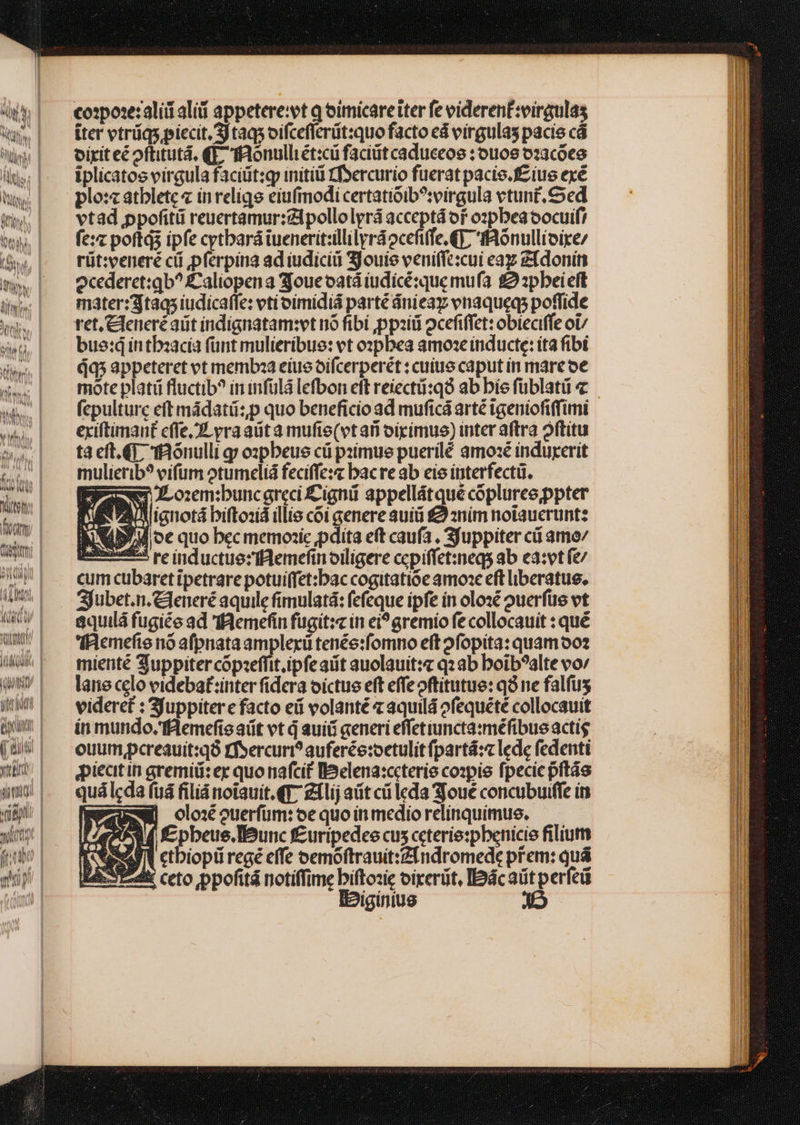 corpore: aliū aliū appetere: vt q̄ dimicare īter se viderent᷑: virgulas
īter vtrūqꝫ ꝓiecit. Itaqꝫ discesserūt: quo facto eā virgulaꝫ pacis cā
dixit eē ꝯstitutā. ¶ Nōnulli ēt: cū faciūt caduceos: duos dracōes
īplicatos virgula faciūt: ꝙ initiū Mercurio fuerat pacis. Eius exē
plo: ⁊ athlete ⁊ in reliqs eiusmodi certatiōibꝰ: virgula vtunt᷑. Sed
vt ad ꝓpositū reuertamur: Apollo lyrā acceptā dr̄ orphea docuis/
se: ⁊ postqꝫ ipse cytharā īuenerit: illi lyrā ꝯcessisse. ¶ Nōnulli dixe/
rūt: venerē cū ꝓserpina ad iudiciū Iouis venisse: cui eaꝝ Adonin
ꝯcederet: qbꝰ Caliopen a Ioue datā iudicē: que musa Orphei est
mater: Itaqꝫ iudicasse: vti dimidiā partē ānieaꝝ vnaqueqꝫ posside
ret. Uenerē aūt indignatam: vt nō sibi ꝓpriū ꝯcessisset: obiecisse oī/
bus: q̄ in thracia sunt mulieribus: vt orphea amore inducte: ita sibi
q̄qꝫ appeteret vt membra eius discerperēt: cuius caput in mare de
mōte platū fluctibꝰ in insulā lesbon est reiectū: qđ ab his sublatū ⁊
sepulture est mādatū: ꝓ quo beneficio ad musicā artē īgeniosissimi
existimant᷑ esse. Lyra aūt a musis (vt añ diximus) inter astra ꝯstitu
ta est. ¶ Nōnulli ꝙ orpheus cū primus puerilē amorē induxerit
mulieribꝰ visum ꝯtumeliā fecisse: ⁊ hac re ab eis interfectū.
Olorem: hunc greci Cignū appellāt quē cōplures ꝓpter
ignotā historiā illis cōi genere auiū Ornim notauerunt:
de quo hec memorie ꝓdita est causa. Iuppiter cū amo/
re inductus: Nemesin diligere cepisset: neqꝫ ab ea: vt se/
cum cubaret īpetrare potuisset: hac cogitatiōe amore est liberatus.
Iubet. n. Uenerē aquile simulatā: seseque ipse in olorē ꝯuersus vt
aquilā fugiēs ad Nemesin fugit: ⁊ in eiꝰ gremio se collocauit: quē
Nemesis nō aspnata amplexū tenēs: somno est ꝯsopita: quam dor
mientē Iuppiter cōpressit. ipse aūt auolauit: ⁊ qꝛ ab hoībꝰ alte vo/
lans celo videbat᷑: inter sidera dictus est esse ꝯstitutus: qđ ne falsuꝫ
videret᷑: Iuppiter e facto eū volantē ⁊ aquilā ꝯsequētē collocauit
in mundo. Nemesis aūt vt q̄ auiū generi esset iuncta: mēsibus actis
ouum ꝓcreauit: qđ Mercuriꝰ auferēs: detulit spartā: ⁊ lede sedenti
ꝓiecit in gremiū: ex quo nascit᷑ Helena: ceteris corpis specie p̄stās
quā leda suā filiā noīauit. ¶ Alij aūt cū leda Iouē concubuisse in
olorē ꝯuersum: de quo in medio relinquimus.
Epheus. Hunc Euripedes cuꝫ ceteris: phenicis filium
ethiopū regē esse demōstrauit: Andromede p̄rem: quā
ceto ꝓpositā notissime historie dixerūt. Hāc aūt perseū
Higinius D